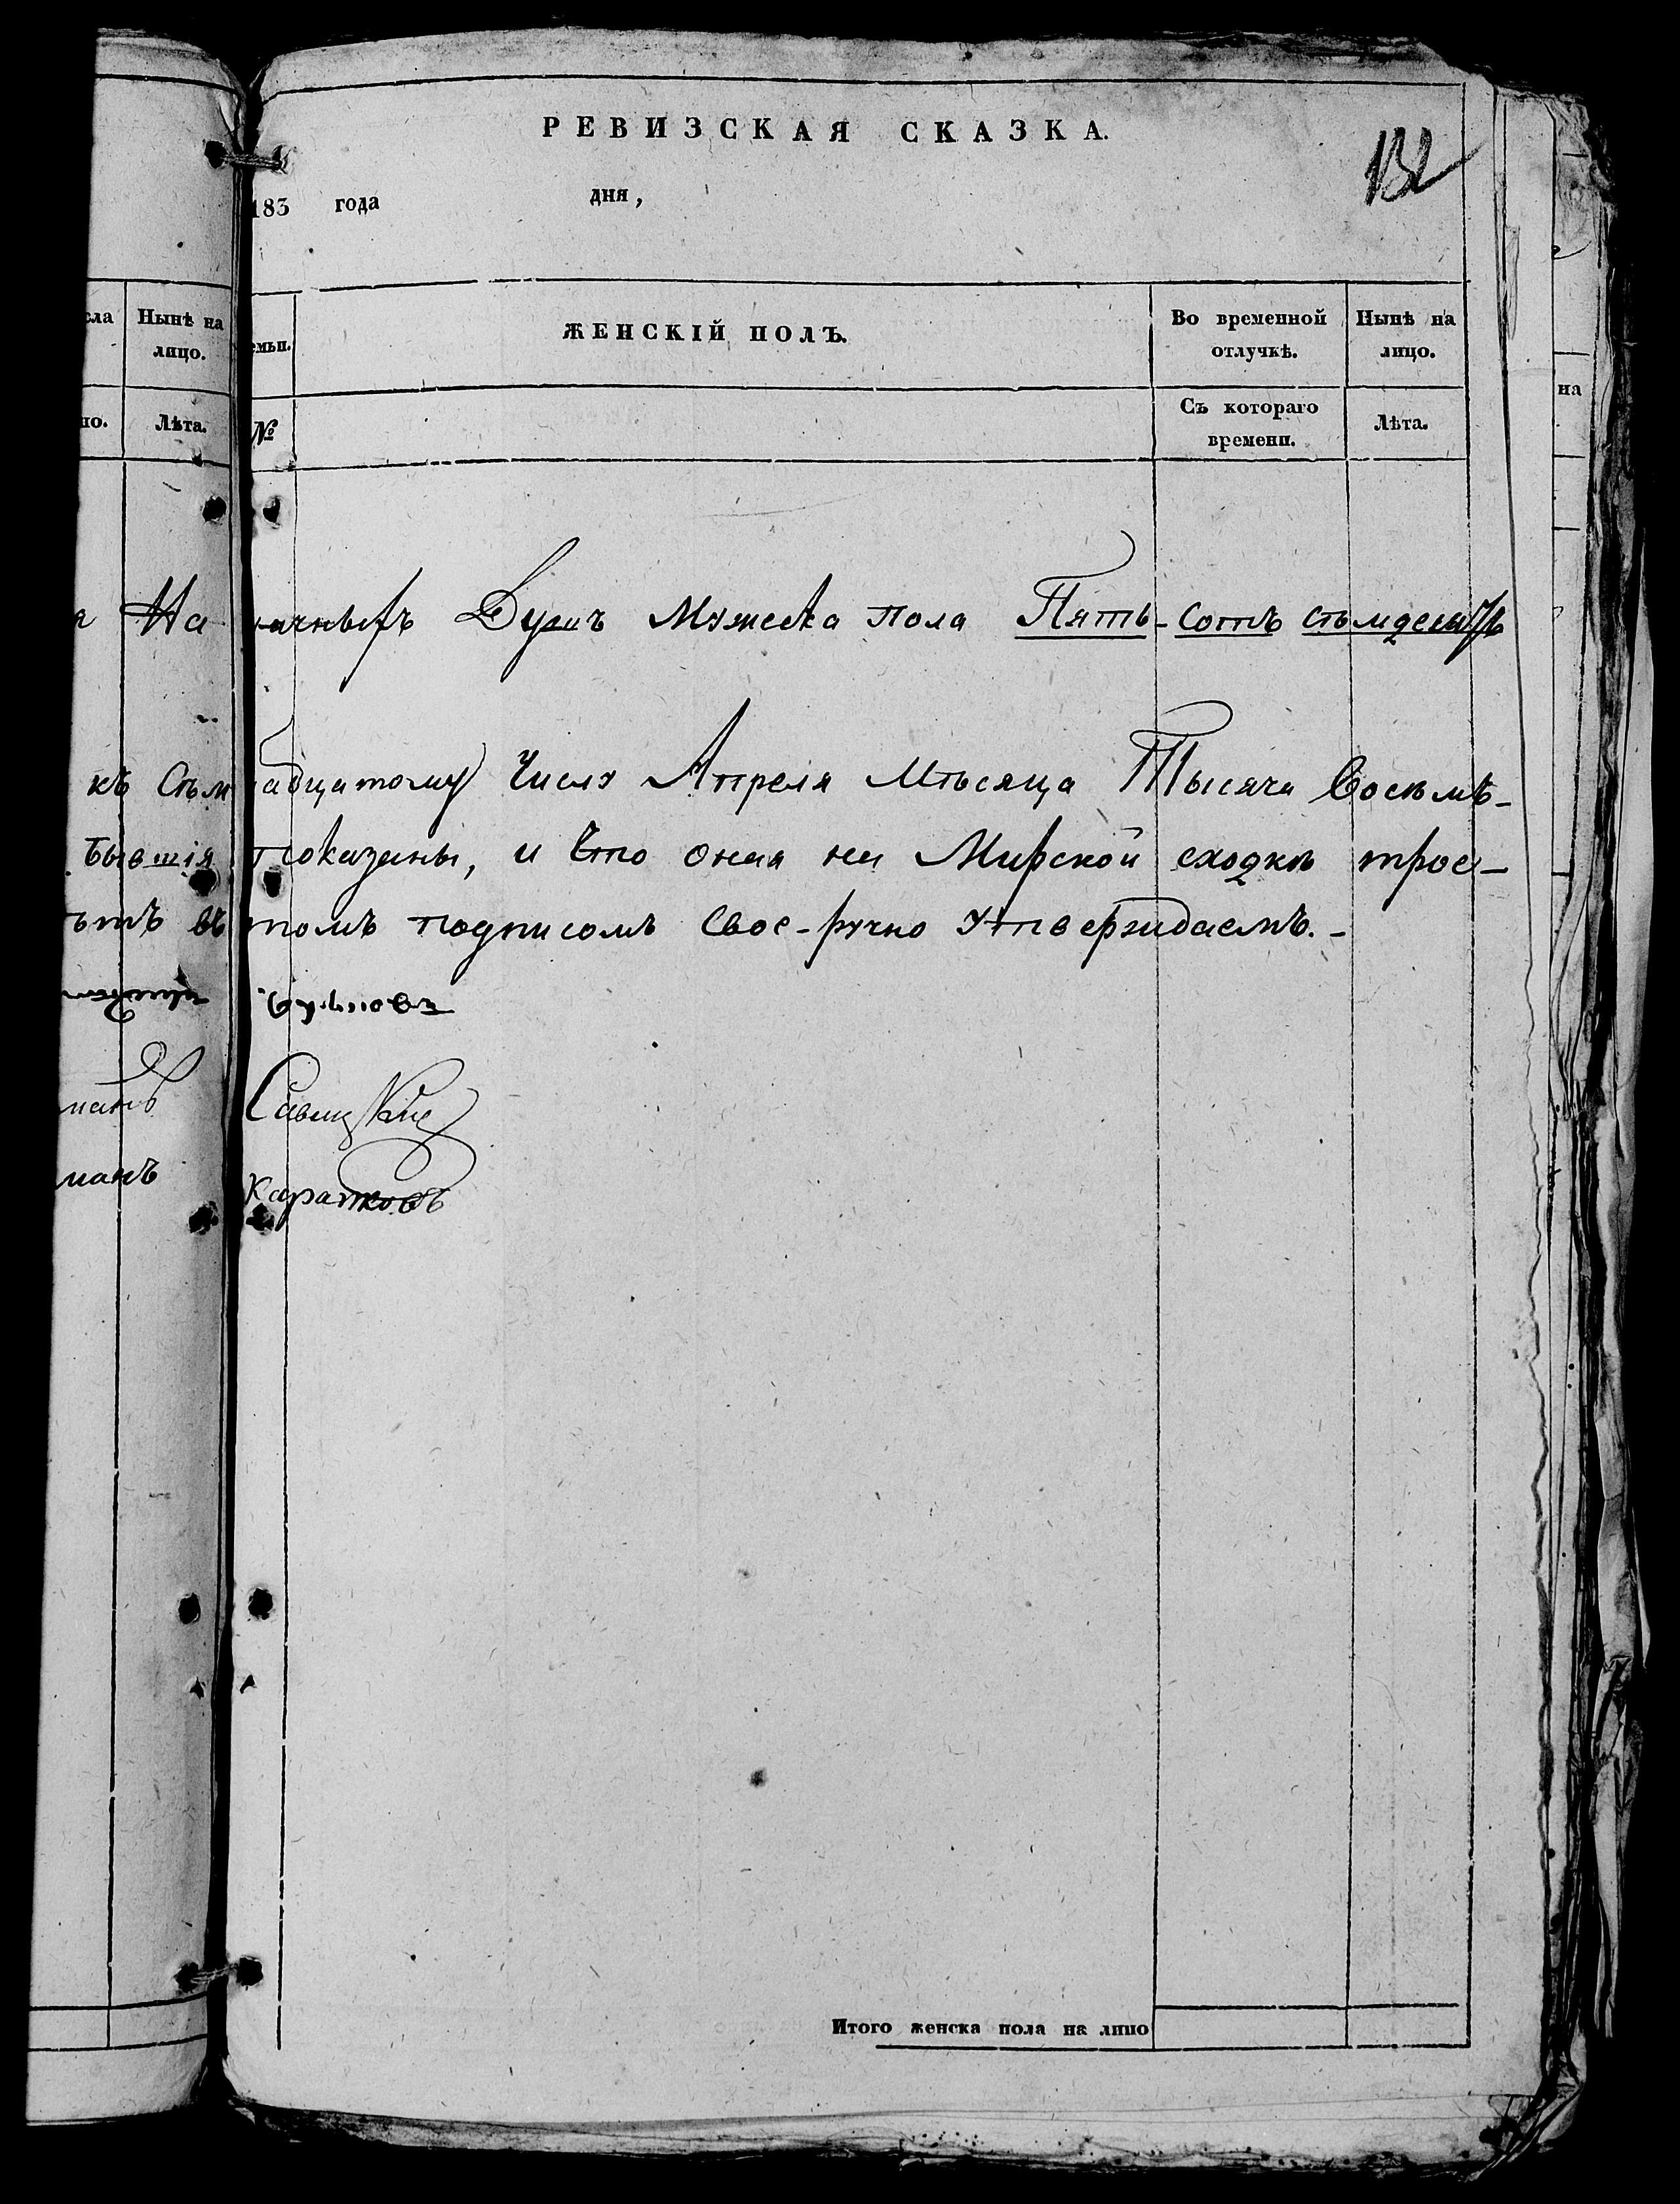 РЕВИЗСКАЯ СКАЗКА.
132
183 года дня,
сла
Нынѣ на
лицо.
емьи.
ЖЕНСКІЙ ПОЛЪ.
Во временной
отлучкѣ.
Нынѣ на
лицо.
но.
Лѣта.
№
Съ котораго
времени.
Лѣта.
на
я На личныхъ Душъ Мужеска пола Пять-сотъ сѣмдесятъ
къ Сѣм надцатому числу Апреля Мѣсяца Тысяча Восемъ-
бывшія показаны, и что оная на Мирской сходкѣ трое-
ѣтъ въ томъ подписомъ Свое-ручно Утверждаемъ.-
манъ Савицкій
манъ Каратковъ
Итого женска пола на лицо